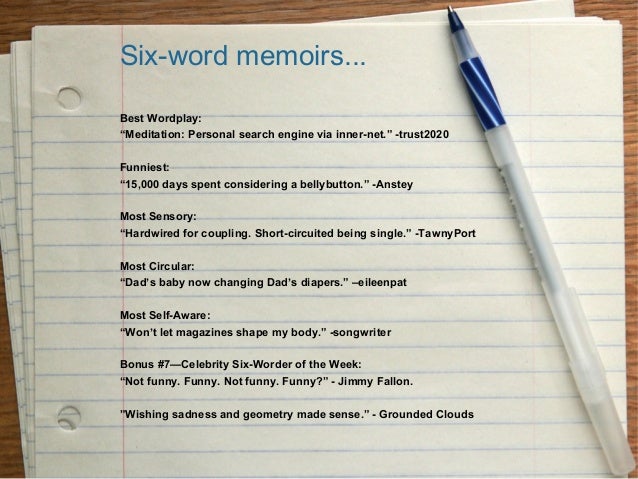 Six-word memoirs...
Best Wordplay:
“Meditation: Personal search engine via inner-net.” -trust2020
Funniest:
“15,000 days spent considering a bellybutton.” -Anstey
Most Sensory:
“Hardwired for coupling. Short-circuited being single.” -TawnyPort
Most Circular:
“Dad’s baby now changing Dad’s diapers.” –eileenpat
Most Self-Aware:
“Won’t let magazines shape my body.” -songwriter
Bonus #7—Celebrity Six-Worder of the Week:
“Not funny. Funny. Not funny. Funny?” - Jimmy Fallon.
”Wishing sadness and geometry made sense.” - Grounded Clouds